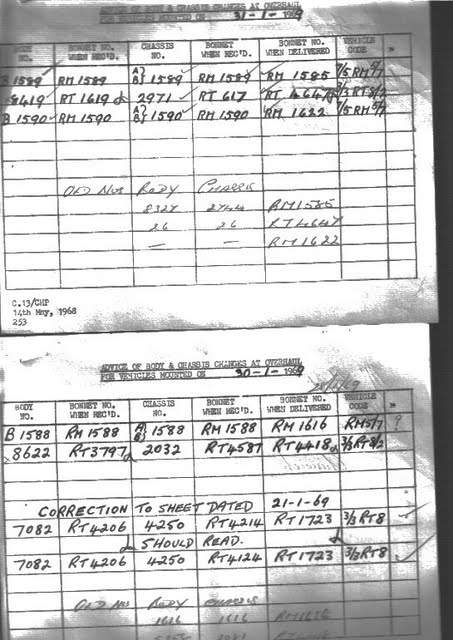 ADVICE OF BODY & CHASSIS CHANGES AT OVERHAUL
FOR VEHICLES MOUNTED ON 31-1-1969
BODY NO. BONNET NO. WHEN REC'D. CHASSIS NO. BONNET WHEN REC'D. BONNET NO. WHEN DELIVERED VEHICLE CODE
B 1589 RM 1589 A) B) 1589 RM 1589 RM 1585 7/5 RM5/7
8419 RT 1619 2971 RT 617 RT 4647 3/3 RT8/2
B 1590 RM 1590 A) B) 1590 RM 1590 RM 1622 7/5 RM5/7
OLD NOS BODY CHASSIS
8327 2744 RM1585
26 26 RT4647
— — RM1622
C.13/CHP
14th May, 1968
253
ADVICE OF BODY & CHASSIS CHANGES AT OVERHAUL
FOR VEHICLES MOUNTED ON 30-1-1969
BODY NO. BONNET NO. WHEN REC'D. CHASSIS NO. BONNET WHEN REC'D. BONNET NO. WHEN DELIVERED VEHICLE CODE
B 1588 RM 1588 A) B) 1588 RM 1588 RM 1616 RM5/7 ?
8622 RT3797 2032 RT4587 RT4418 3/3 RT8/2
CORRECTION TO SHEET DATED 21-1-69
7082 RT4206 4250 RT4214 RT1723 3/3 RT8
SHOULD READ.
7082 RT4206 4250 RT4124 RT1723 3/3 RT8
OLD NOS BODY CHASSIS
1616 1616 RM1616